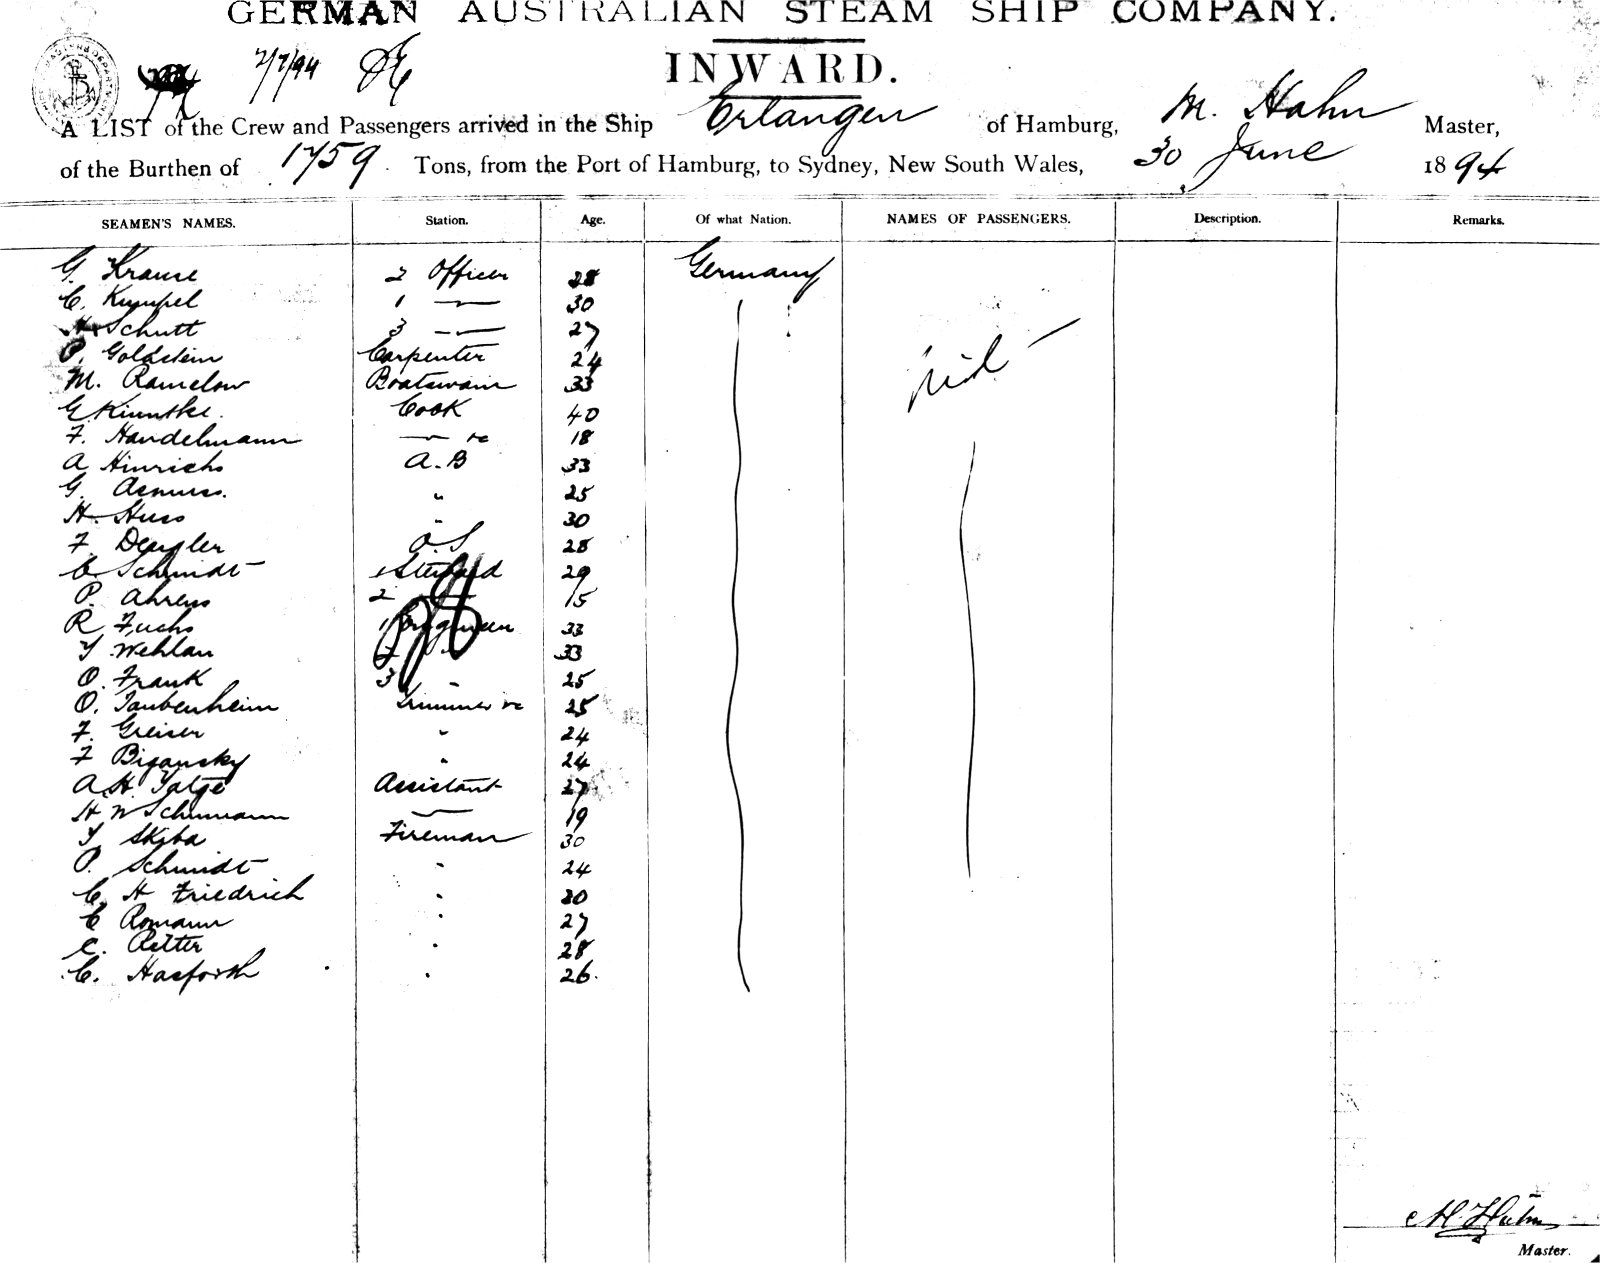 GERMAN AUSTRALIAN STEAM SHIP COMPANY.
7/7/94
INWARD.
A LIST of the Crew and Passengers arrived in the Ship Erlangen of Hamburg, M. Hahn Master,
of the Burthen of 1759 Tons, from the Port of Hamburg, to Sydney, New South Wales, 30 June 1894
SEAMEN'S NAMES. Station. Age. Of what Nation. NAMES OF PASSENGERS. Description. Remarks.
G. Krause 2 Officer 28 Germany
C. Kumpel 1 — 30
H Schutt 3 — 27
P. Goldstein Carpenter 24
M. Ramelow Boatswain 33 Nil —
G. Cook 40
F. Handelmann — 18
A Hinrichs A.B 33
G. Asmuss. " 25
H. Huss " 30
F. O.S 28
C. Schmidt 1 Steward 29
P. Ahrens 2 15
R Fuchs 1 33
Wehlan 2 33
O. Frank 3 " 25
O. Taubenheim Trimmer 25
F. Greiser " 24
F Bigansky " 24
A.H. Tatge Assistant 27
H W Schumann — 19
Skiba Fireman 30
P. Schmidt " 24
C. H Friedrich " 20
C Romann " 27
C. Retter " 28
C. Hasforth " 26.
M. Hahn
Master.